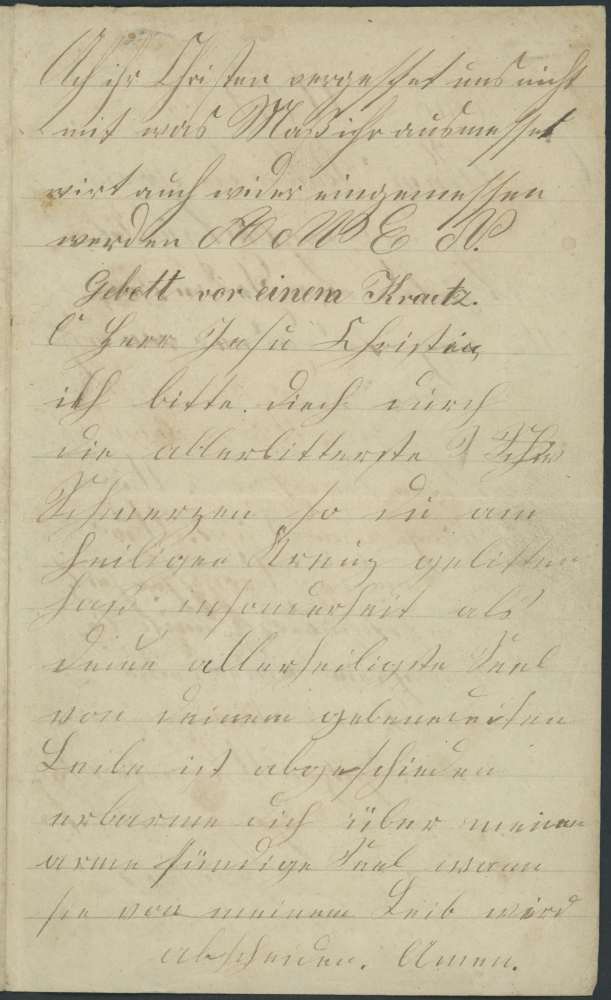 Ach ihr Christen vergesset uns nicht
mit was Maß ihr ausmesset
wirt auch wider eingemessen
werden AMEN.
Gebett vor einem Kreutz.
O Herr Jesu Christiu,
ich bitte. diech durch
die allerbitterste
Schmerzen so du am
heiligen Kreuz gelitten
hast insonderheit als
deine allerheiligste Seel
von deinem gebenedeiten
Leibe ist abgeschieden
erbarme dich über meine
arme sündige Seel wann
sie von meinem Leib wird
abscheiden. Amen.